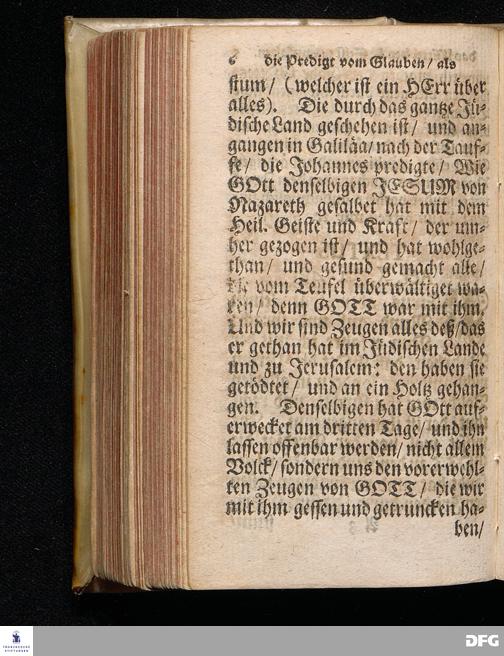 6 die Predigt vom Glauben/ als
stum/ (welcher ist ein HErr über
alles). Die durch das gantze Jü-
dische Land geschehen ist/ und an-
gangen in Galiläa/ nach der Tauf-
fe/ die Johannes predigte/ Wie
GOtt denselbigen JESUM von
Nazareth gesalbet hat mit dem
Heil. Geiste und Kraft/ der um-
her gezogen ist/ und hat wohlge-
than/ und gesund gemacht alle/
die vom Teufel überwältiget wa-
ren/ denn GOTT war mit ihm.
Und wir sind Zeugen alles deß/ das
er gethan hat im Jüdischen Lande
und zu Jerusalem: den haben sie
getödtet/ und an ein Holtz gehan-
gen. Denselbigen hat GOtt auf-
erwecket am dritten Tage/ und ihn
lassen offenbar werden/ nicht allem
Volck/ sondern uns den vorerwehl-
ten Zeugen von GOTT/ die wir
mit ihm gessen und getruncken ha-
ben/
FRANCKESCHE
STIFTUNGEN
DFG